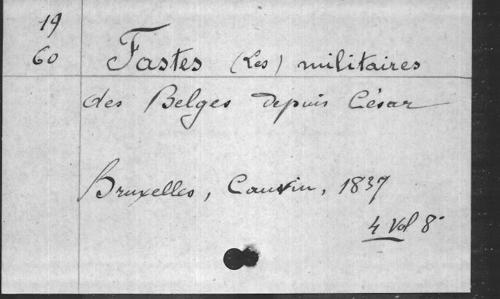 19
60 Fastes (Les) militaires
des Belges depuis César
Bruxelles, Cauvin, 1837
4 Vol 8°